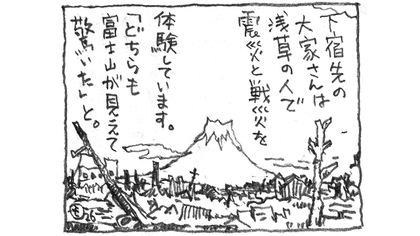 下宿先の
大家さんは
浅草の人で
震災と戦災を
体験しています。
「どちらも
富士山が見えて
驚いた」と。